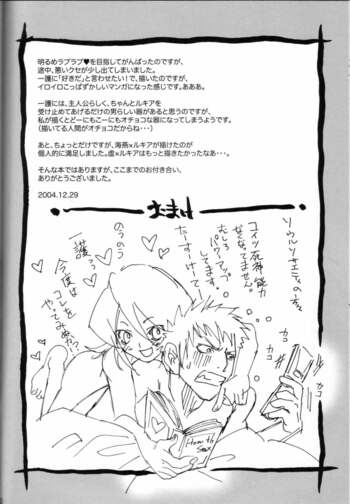 明るめラブラブ♥を目指してがんばったのですが、
途中、悪いクセが少し出てしまいました。
一護に「好きだ」と言わせたい！で、描いたのですが
イロイロこっぱずかしいマンガになった感じです。あああ。
一護には、主人公らしく、ちゃんとルキアを
受け止めてあげるだけの男らしい器があると思うのですが、
私が描くとどーにもこーにもオチョコな器になってしまうようです。
（描いてる人間がオチョコだからね・・・）
あと、ちょっとだけですが、海燕×ルキアが描けたのが
個人的に満足しました。虚×ルキアはもっと描きたかったなあ・・・。
そんな本ではありますが、ここまでのお付き合い、
ありがとうございました。
2004.12.29
おまけ
ソウルソサエティの方
コイツ死神能力
なくなってません。
むしろ
パワーアップ
してます。
たーすけてー
カコ
カコ
カコ
のうのう
一護っっ
今夜は
コレを
やってみぬ？
How to
Sex